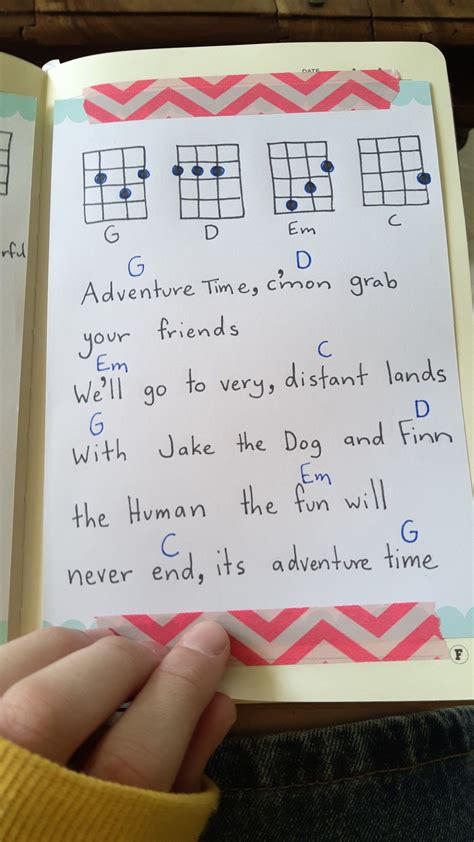 DATE
G D Em C
rful
G D
Adventure Time, c'mon grab
your friends
Em C
We'll go to very, distant lands
G D
With Jake the Dog and Finn
Em
the Human the fun will
C G
never end, its adventure time
F